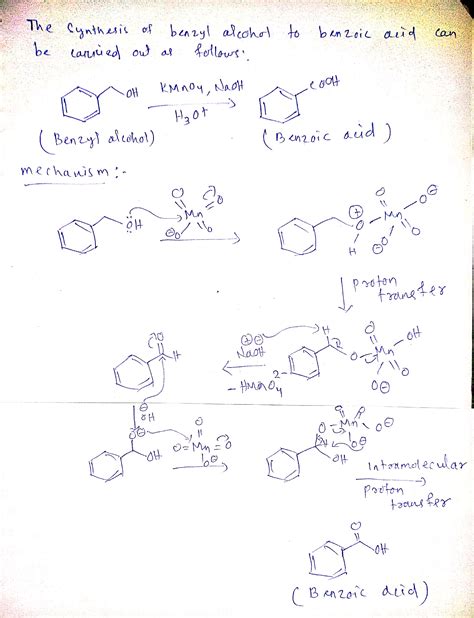 The Synthesis of benzyl alcohol to benzoic acid can
be carried out as follows:
OH KMnO4, NaOH COOH
H3O+
(Benzyl alcohol) (Benzoic acid)
mechanism :-
O O
ÖH Mn O ⊕ O Mn O⊖
⊖O O H ⊖O O
Proton
transfer
O ⊕⊖ H O OH
H NaOH O Mn
- HMnO4 2- O O⊖
⊖ÖH O O
O⊖ O O Mn O⊖
OH O=Mn=O H OH
O⊖ Intramolecular
Proton
transfer
O
OH
(Benzoic acid)